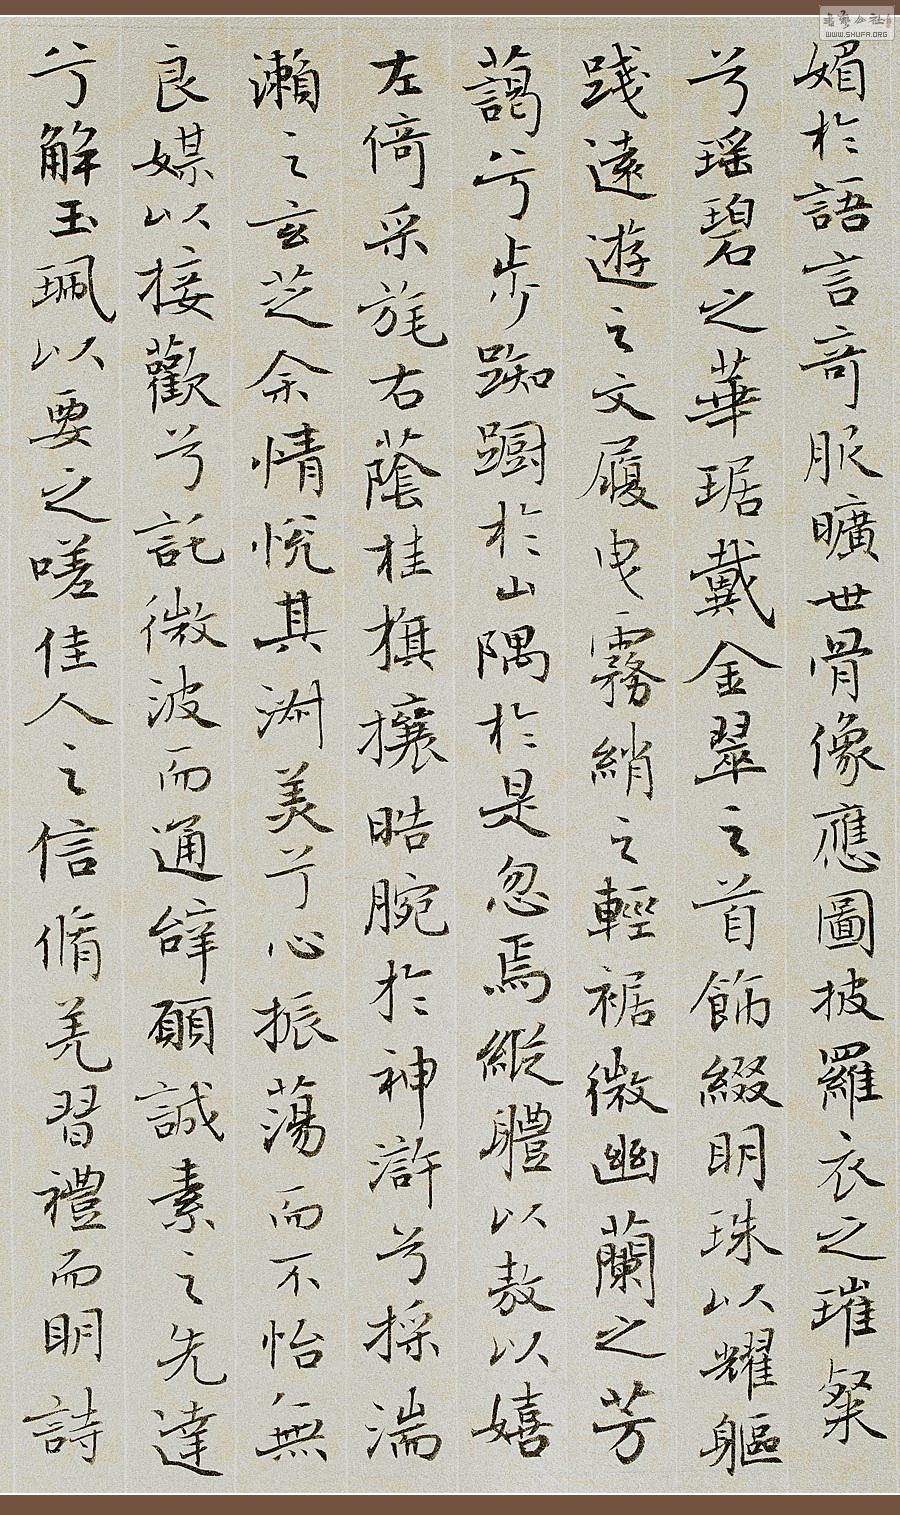 媚於語言奇服曠世骨像應圖披羅衣之璀粲
兮瑶碧之華琚戴金翠之首飾綴明珠以耀軀
踐遠遊之文履曳霧綃之輕裾微幽蘭之芳
藹兮步踟躕於山隅於是忽焉縱體以敖以嬉
左倚采旄右蔭桂旗攘皓腕於神滸兮採湍
瀨之玄芝余情悅其淑美兮心振蕩而不怡無
良媒以接歡兮託微波而通辭願誠素之先達
兮解玉珮以要之嗟佳人之信脩羌習禮而明詩
WWW.SHUFA.ORG